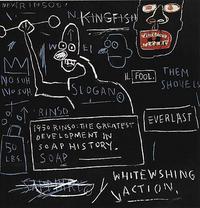 NEVER RINSO
KINGFISH
NO SUH
NO SUH
II. FOOL.
THEM
SHOVELS
SLOGAN
RINSO
EVERLAST
1950 RINSO: THE GREATEST
DEVELOPMENT IN
SOAP HISTORY.
SOAP
50
LBS.
WHITEWSHING
ACTION.